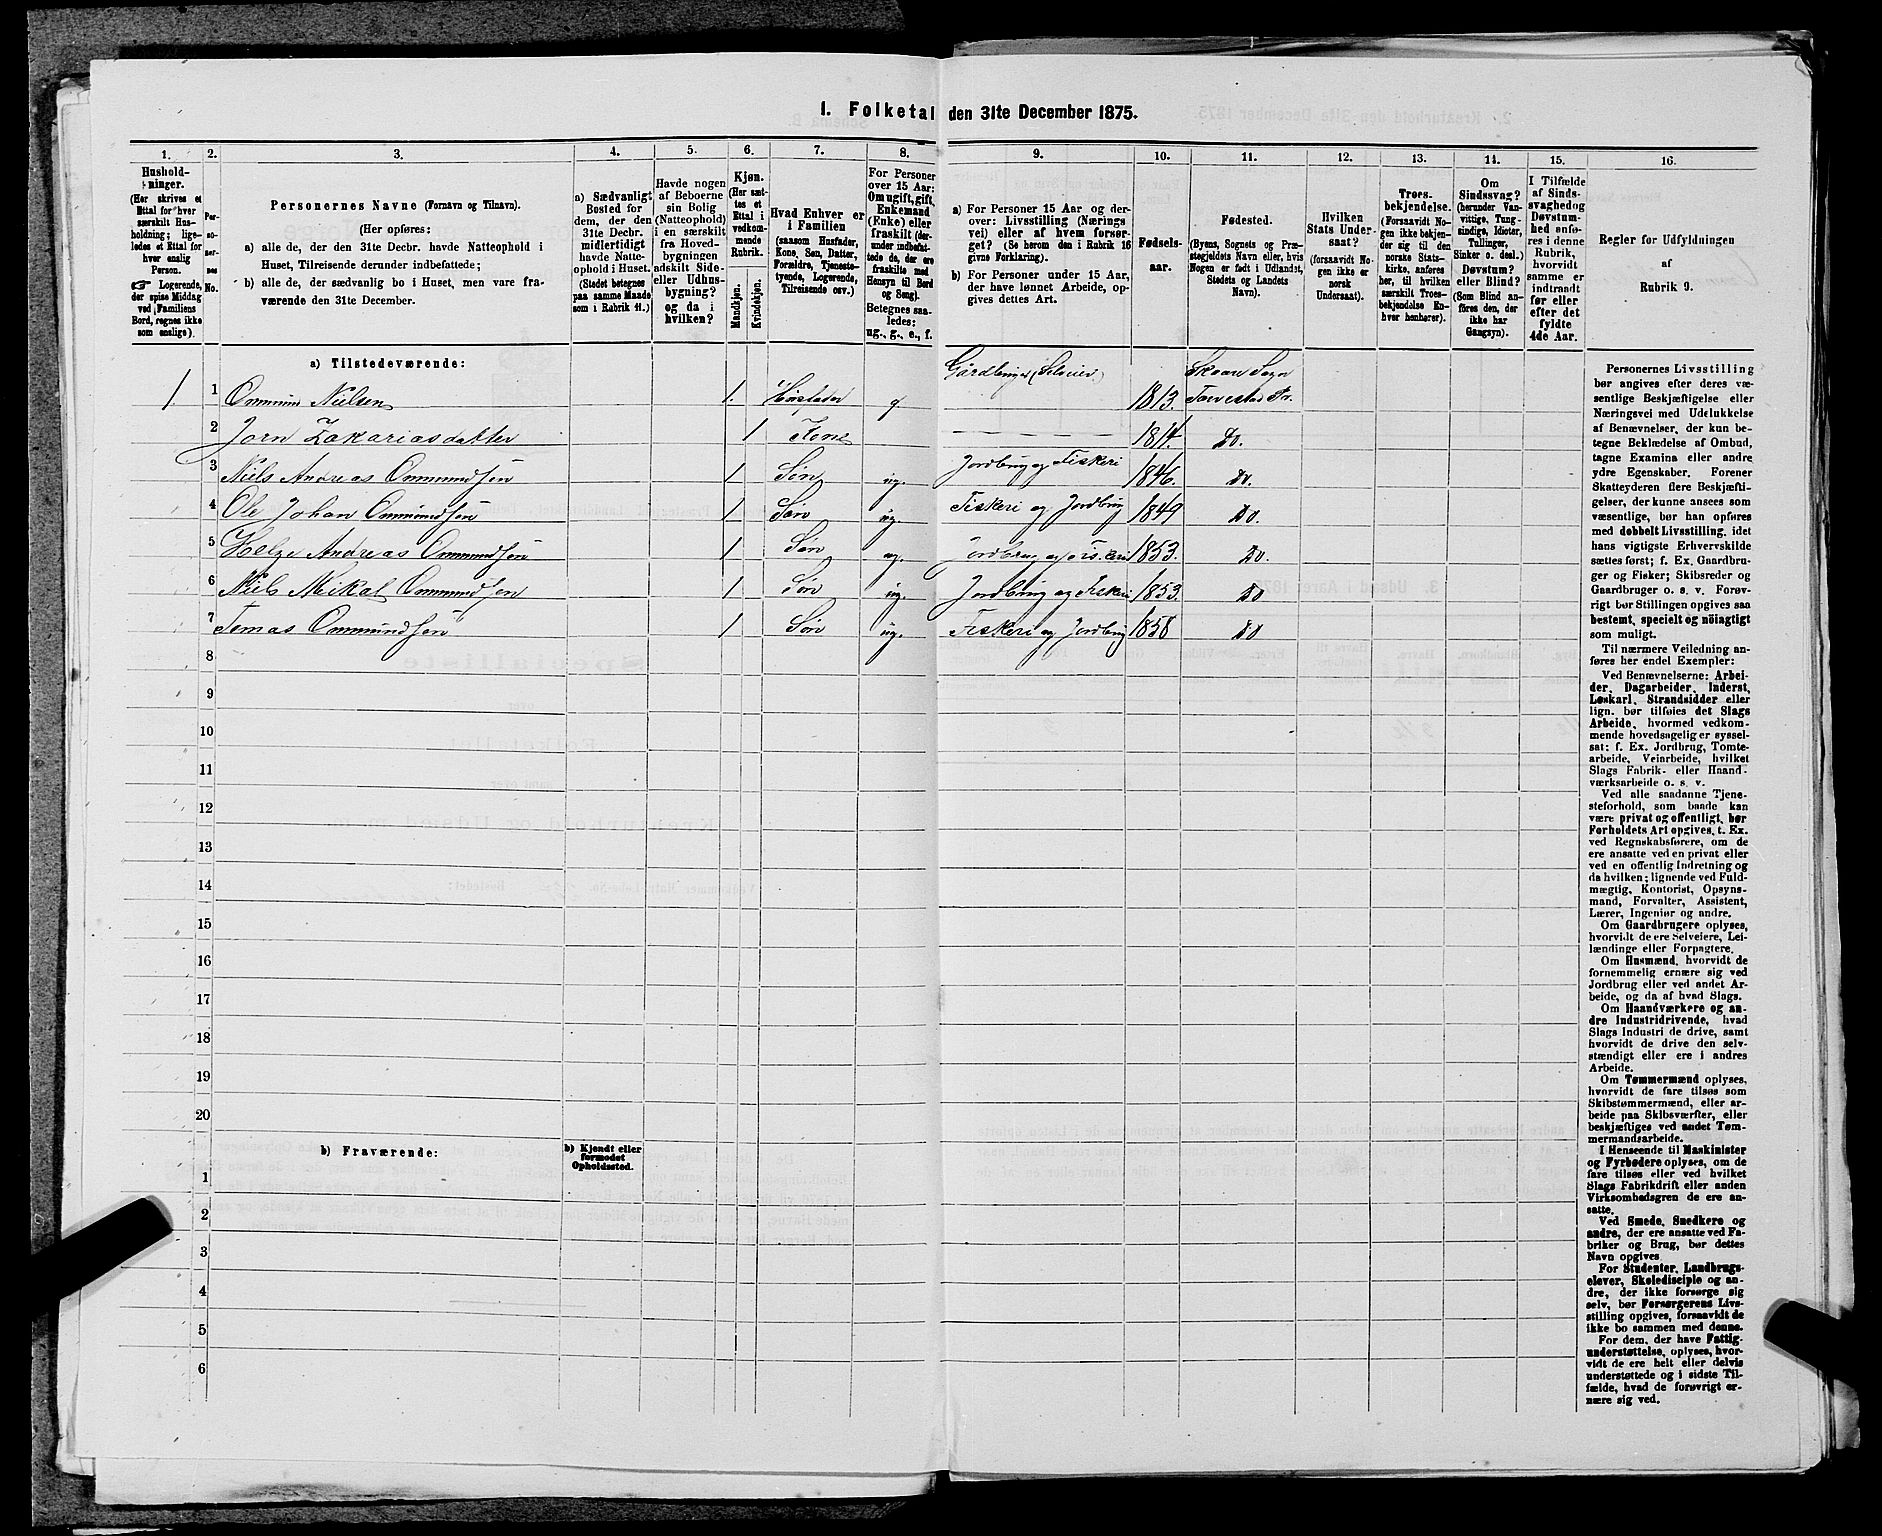 1. Folketal den 31te December 1875.
1. 2. 3. 4. 5. 6. 7. 8. 9. 10. 11. 12. 13. 14. 15. 16.
Husholdninger.
(Her skrives et
Ettal for hver
særskilt Husholdning;
ligeledes et Ettal for
hver enslig
Person.
☞ Logerende,
der spise Middag
ved Familiens
Bord, regnes ikke
som enslige).
Personernes No.
Personernes Navne (Fornavn og Tilnavn).
(Her opføres:
a) alle de, der den 31te Decbr. havde Natteophold i
Huset, Tilreisende derunder indbefattede;
b) alle de, der sædvanlig bo i Huset, men vare fraværende
den 31te December.
a) Sædvanligt
Bosted for
dem, der den
31te Decbr.
midlertidigt
havde Natteophold
i Huset.
(Stedet betegnes
paa samme Maade
som i Rubrik 11.)
Havde nogen
af Beboerne
sin Bolig
(Natteophold)
i en særskilt
fra Hovedbygningen
adskilt Side-
eller Udhusbygning?
og da i
hvilken?
Kjøn.
(Her sættes
et
Ettal i
vedkommende
Rubrik.
Mandkjøn.
Kvindekjøn.
Hvad Enhver er
i Familien
(saasom Husfader,
Kone, Søn, Datter,
Forældre, Tjenestetyende,
Logerende,
Tilreisende osv.)
For Personer
over 15 Aar:
Om ugift, gift,
Enkemand
(Enke) eller
fraskilt (derunder
indbefattede
de, der ere
fraskilte med
Hensyn til Bord
og Seng).
Betegnes saaledes:
ug., g., e., f.
a) For Personer 15 Aar og derover:
Livsstilling (Næringsvei)
eller af hvem forsørget?
(Se herom den i Rubrik 16
givne Forklaring).
b) For Personer under 15 Aar,
der have lønnet Arbeide, opgives
dettes Art.
Fødselsaar.
Fødested.
(Byens, Sognets og Præstegjeldets
Navn eller, hvis
Nogen er født i Udlandet,
Stedets og Landets
Navn).
Hvilken
Stats Undersaat?
(forsaavidt Nogen
ikke er
norsk
Undersaat).
Troesbekjendelse.
(Forsaavidt Nogen
ikke bekjender
sig til den
norske Statskirke,
anføres
her, til hvilken
særskilt Troesbekjendelse
Enhver
henhører).
Om
Sindssvag?
(herunder Vanvittige,
Tungsindige,
Idioter,
Tullinger,
Sinker o. desl.)
Døvstum?
eller Blind?
(Som Blind anføres
den, der
ikke har
Gangsyn).
I Tilfælde
af Sindssvaghed
og
Døvstumhed
anføres
i denne
Rubrik,
hvorvidt
samme er
indtraadt
før eller
efter det
fyldte
4de Aar.
Regler for Udfyldningen
af
Rubrik 9.
a) Tilstedeværende:
1 1 Ommund Nielsen 1. Husfader g. Gårdbruger (Selveier) 1813. Skaare Sogn Torvestad Pr.
2 Jorn Zakariasdatter 1 Kone 1814. Do.
3 Niels Andreas Ommundsen 1 Søn ug. Jordbrug og Fiskeri 1846. Do.
4 Ole Johan Ommundsen 1 Søn ug. Fiskeri og Jordbrug 1849 Do.
5 Helge Andreas Ommundsen 1 Søn ug. Jordbrug og Fiskeri 1853. Do
6 Niels Mikal Ommundsen 1 Søn ug. Jordbrug og Fiskeri 1853. Do
7 Tomas Ommundsen 1 Søn ug. Fiskeri og Jordbrug 1858 Do
8
9
10
11
12
13
14
15
16
17
18
19
20
b) Fraværende:
b) Kjendt eller
formodet
Opholdssted.
1
2
3
4
5
6
Personernes Livsstilling
bør angives efter deres væsentlige
Beskjæftigelse eller
Næringsvei med Udelukkelse
af Benævnelser, der kun betegne
Beklædelse af Ombud,
tagne Examina eller andre
ydre Egenskaber. Forener
Skatteyderen flere Beskjæftigelser,
der kunne ansees som
væsentlige, bør han opføres
med dobbelt Livsstilling, idet
hans vigtigste Erhvervskilde
sættes først; f. Ex. Gaardbruger
og Fisker; Skibsreder og
Gaardbruger o. s. v. Forøvrigt
bør Stillingen opgives saa
bestemt, specielt og nøiagtigt
som muligt.
Til nærmere Veiledning anføres
her endel Exempler:
Ved Benævnelserne: Arbeider,
Dagarbeider, Inderst,
Løskarl, Strandsidder eller
lign. bør tilføies det Slags
Arbeide, hvormed vedkommende
hovedsagelig er sysselsat;
f. Ex. Jordbrug, Tomtearbeide,
Veiarbeide, hvilket
Slags Fabrik- eller Haandværksarbeide
o. s. v.
Ved alle saadanne Tjenesteforhold,
som baade kan
være privat og offentligt, bør
Forholdets Art opgives, t. Ex.
ved Regnskabsførere, om de
ere ansatte ved en privat eller
ved en offentlig Indretning og
da hvilken; lignende ved Fuldmægtig,
Kontorist, Opsynsmand,
Forvalter, Assistent,
Lærer, Ingeniør og andre.
Om Gaardbrugere oplyses,
hvorvidt de ere Selveiere, Leilændinge
eller Forpagtere.
Om Husmænd, hvorvidt de
fornemmelig ernære sig ved
Jordbrug eller ved andet Arbeide,
og da af hvad Slags.
Om Haandværkere og andre
Industridrivende, hvad
Slags Industri de drive, samt
hvorvidt de drive den selvstændigt
eller ere i andres
Arbeide.
Om Tømmermænd oplyses,
hvorvidt de fare tilsøs som
Skibstømmermænd, eller arbeide
paa Skibsværfter, eller
beskjæftiges ved andet Tømmermandsarbeide.
I Henseende til Maskinister
og Fyrbødere oplyses, om de
fare tilsøs eller ved hvilket
Slags Fabrikdrift eller anden
Virksomhedsgren de ere ansatte.
Ved Smede, Snedkere og
andre, der ere ansatte ved Fabriker
og Brug, bør dettes
Navn opgives.
For Studenter, Landbrugselever,
Skoledisciple og andre,
der ikke forsørge sig
selv, bør Forsørgerens Livsstilling
opgives, forsaavidt de
ikke bo sammen med denne.
For dem, der have Fattigunderstøttelse,
oplyses, hvorvidt
de ere helt eller delvis
understøttede og i sidste Tilfælde,
hvad de forøvrigt ernære
sig ved.